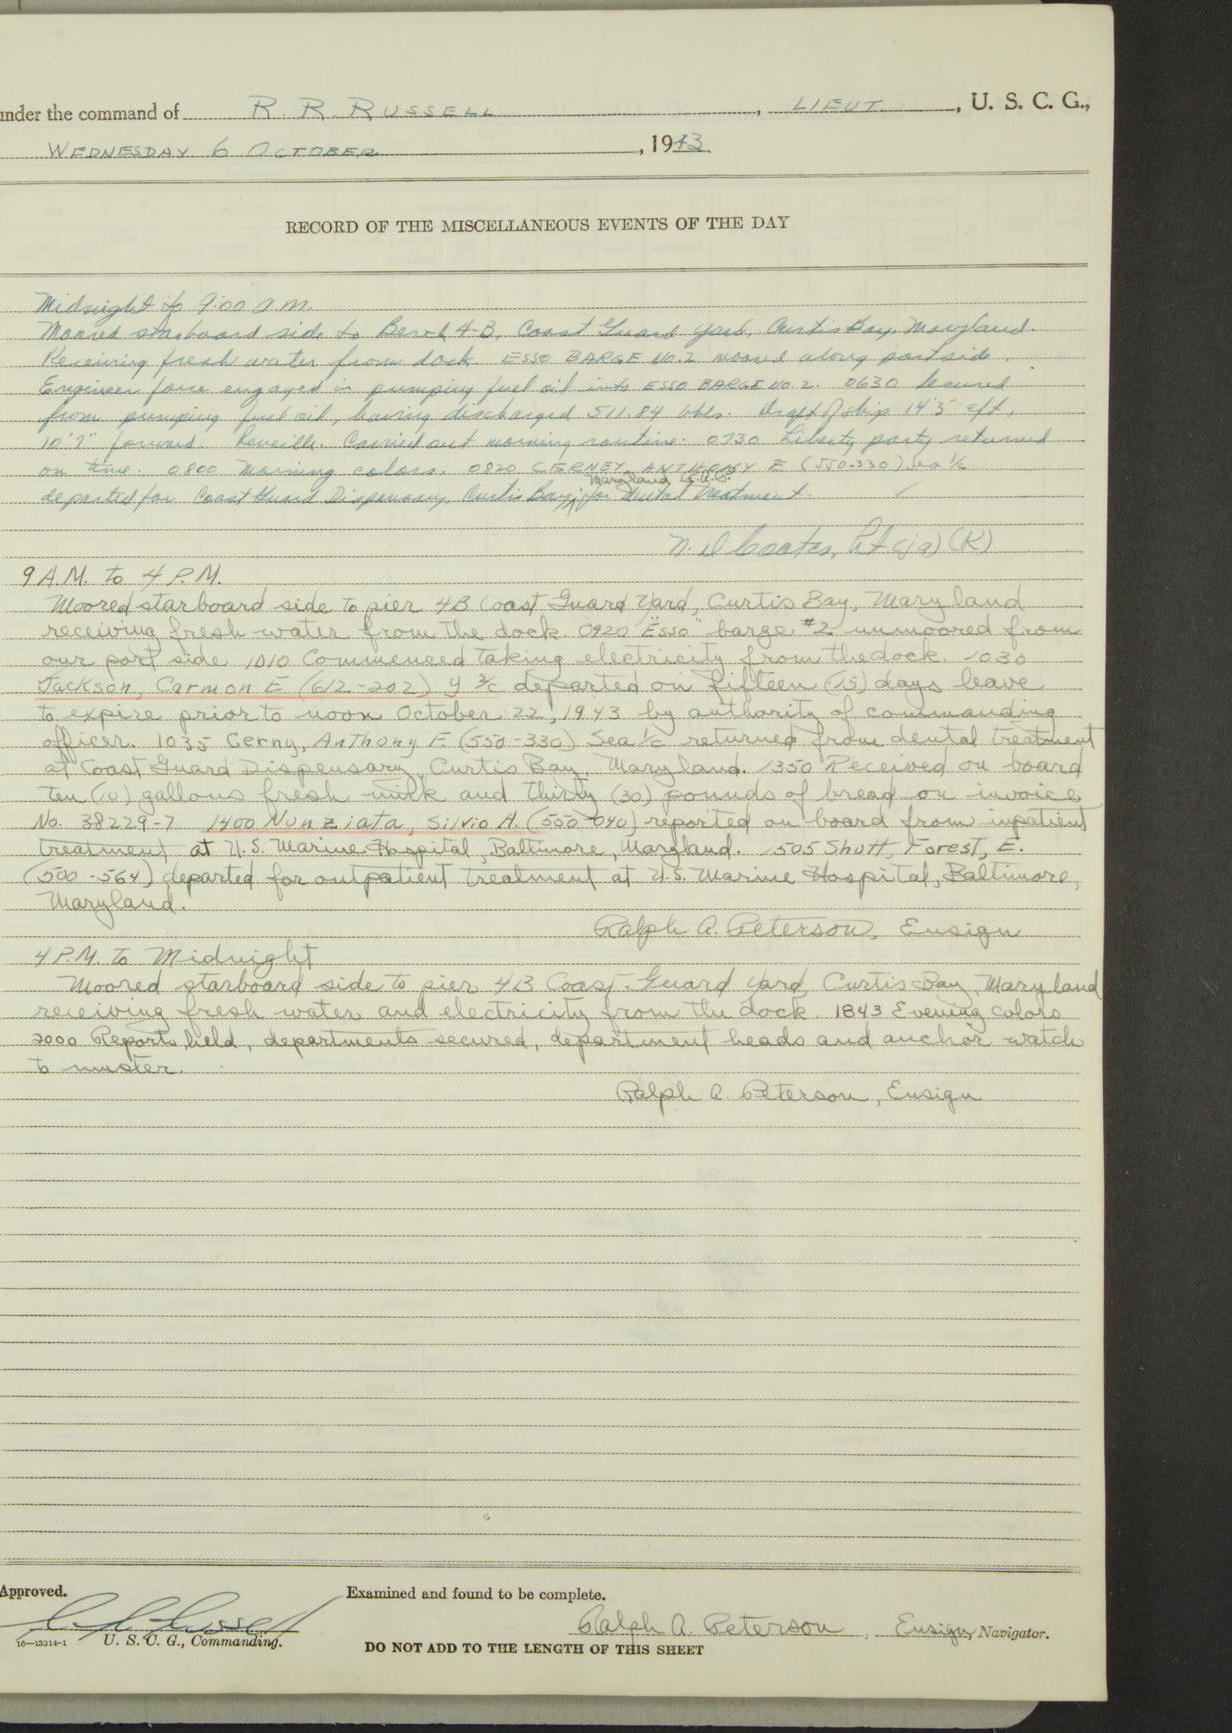 under the command of R. R. RUSSELL, LIEUT., U. S. C. G.,
WEDNESDAY 6 OCTOBER, 1943
RECORD OF THE MISCELLANEOUS EVENTS OF THE DAY
Midnight to 9:00 a.m.
Moored starboard side to Berth 4-B, Coast Guard Yard, Curtis Bay, Maryland.
Receiving fresh water from dock. ESSO BARGE NO.2 moored along portside.
Engineer force engaged in pumping fuel oil into ESSO BARGE NO.2. 0630 Secured
from pumping fuel oil, having discharged 511.84 bbls. Draft of ship 14'3" aft,
10'7" forward. Reveille. Carried out morning routine. 0730 Liberty party returned
on time. 0800 Morning colors. 0820 CERNEY, ANTHONY E (550-330) Sea 1/c
departed for Coast Guard Dispensary, Curtis Bay, Maryland for dental treatment.
9 A.M. to 4 P.M.
Moored starboard side to pier 4B Coast Guard Yard, Curtis Bay, Maryland
receiving fresh water from the dock. 0920 "Esso" barge #2 unmoored from
our port side 1010 Commenced taking electricity from the dock. 1030
Jackson, Carmon E (612-202) Y 3/c departed on fifteen (15) days leave
to expire prior to noon October 22, 1943 by authority of commanding
officer. 1035 Cerny, Anthony E (550-330) Sea 1/c returned from dental treatment
at Coast Guard Dispensary, Curtis Bay, Maryland. 1350 Received on board
ten (10) gallons fresh milk and thirty (30) pounds of bread on invoice
No. 38229-7 1400 Nunziata, Silvio A. (550-040) reported on board from inpatient
treatment at U.S. Marine Hospital, Baltimore, Maryland. 1505 Shutt, Forest, E.
(500-564) departed for outpatient treatment at U.S. Marine Hospital, Baltimore,
Maryland.
Ralph A. Peterson, Ensign
4 P.M. to Midnight
Moored starboard side to pier 4B Coast Guard Yard, Curtis Bay, Maryland
receiving fresh water and electricity from the dock. 1843 Evening colors
2000 Reports held, departments secured, department heads and anchor watch
to muster.
Ralph A. Peterson, Ensign
Approved.
Examined and found to be complete.
Ralph A. Peterson, Ensign, Navigator.
16—13314-1 U. S. C. G., Commanding.
DO NOT ADD TO THE LENGTH OF THIS SHEET